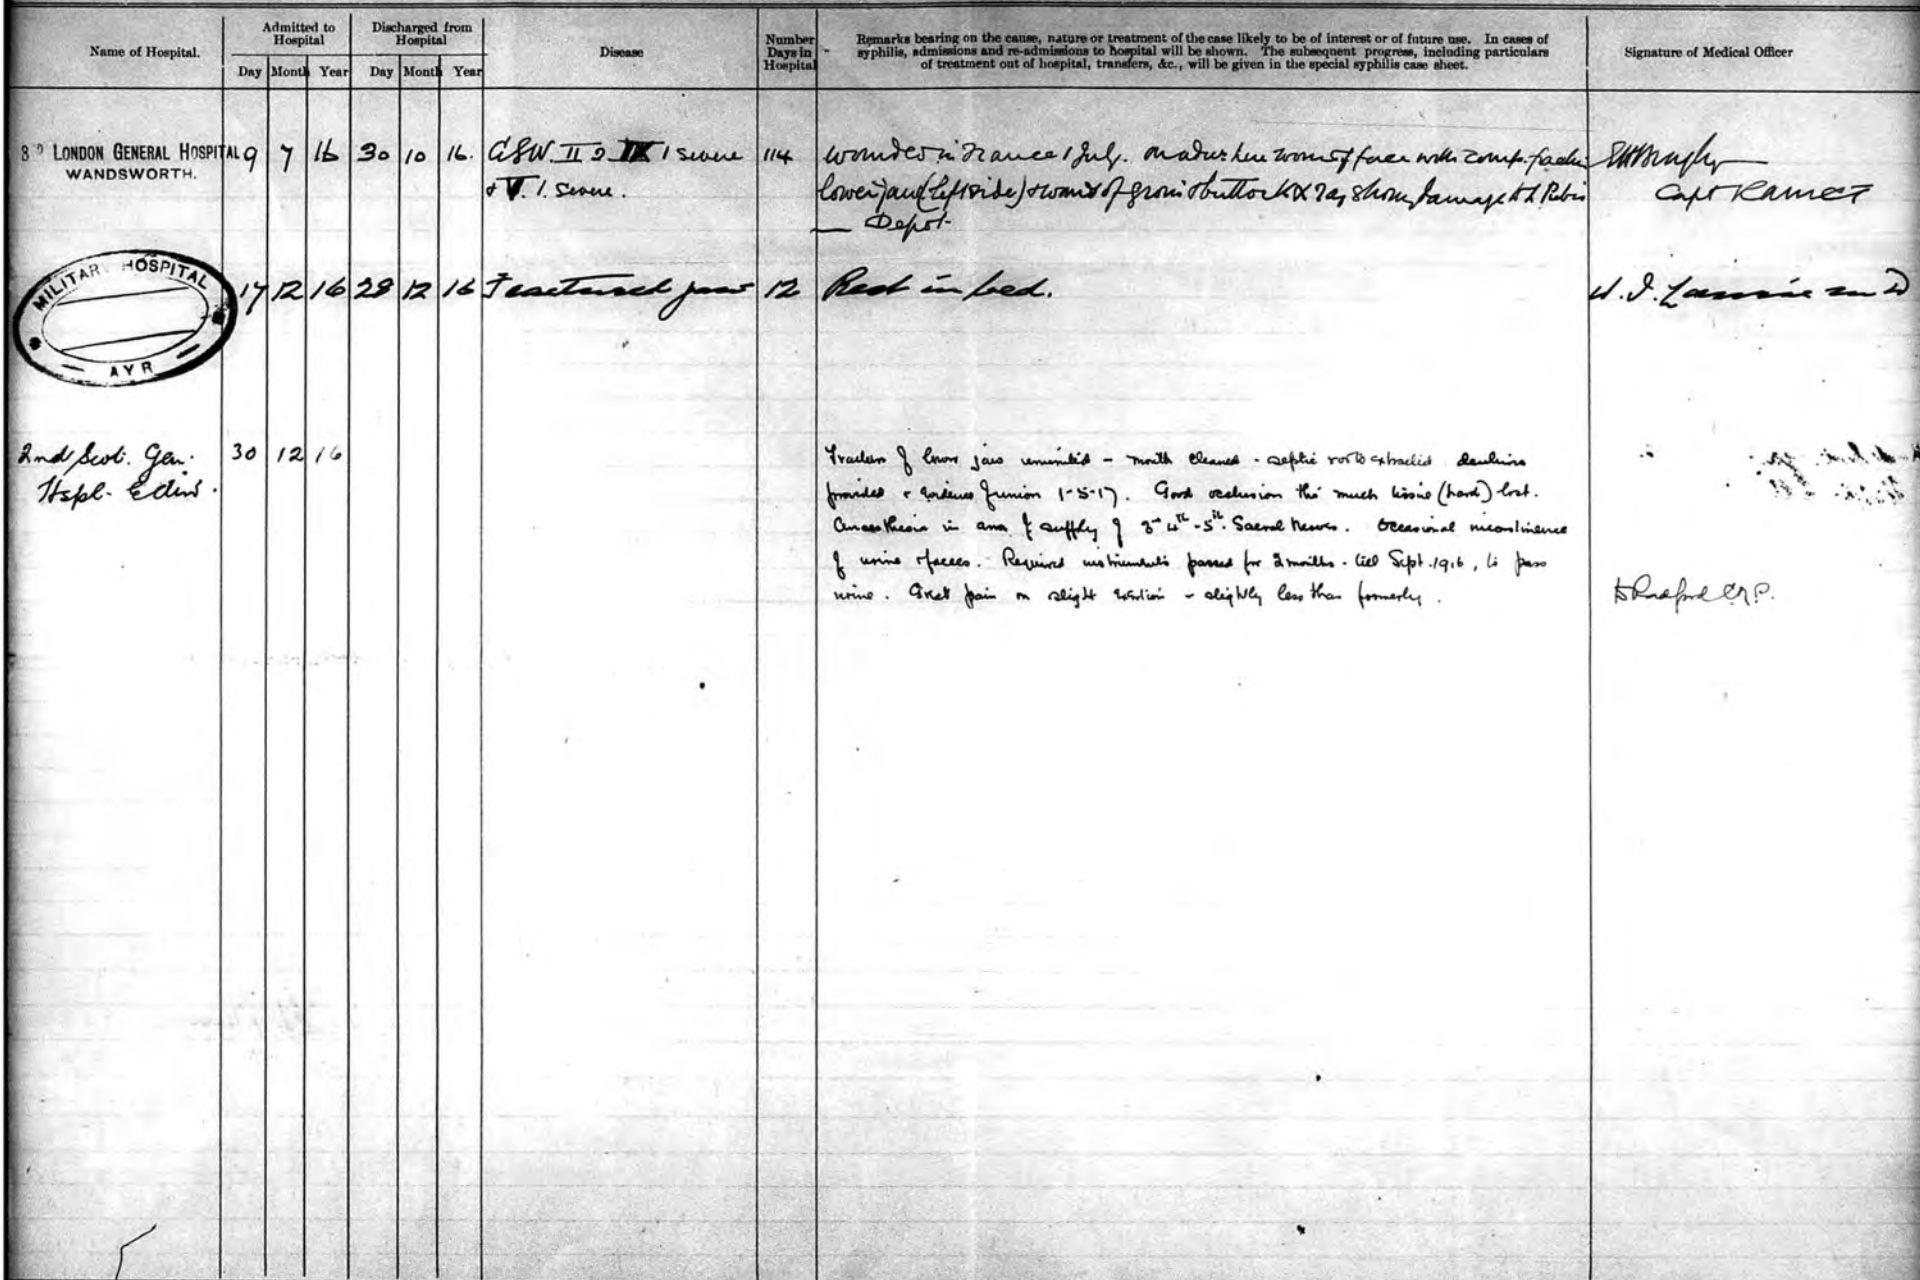 Name of Hospital.
Admitted to Hospital
Discharged from Hospital
Disease
Number Days in Hospital
Remarks bearing on the cause, nature or treatment of the case likely to be of interest or of future use. In cases of
syphilis, admissions and re-admissions to hospital will be shown. The subsequent progress, including particulars
of treatment out of hospital, transfers, &c., will be given in the special syphilis case sheet.
Signature of Medical Officer
Day Month Year Day Month Year
LONDON GENERAL HOSPITAL 9 7 16 30 10 16. GSW. II 2 1 severe 114 wounded in France 1 July. wound of face with comp.
WANDSWORTH. & V. 1. severe. lower jaw (left side) & wound of groin & buttock X ray shows damage to L Pubis Capt RAMCT
Depot
MILITARY HOSPITAL
AYR
17 12 16 28 12 16 Fractured jaw 12 Rest in bed.
2nd Scot. Gen. 30 12 16 Fracture of lower jaw ununited - mouth cleaned - septic roots extracted dentures
Hspl. Edin. provided & evidence of union 1-5-17. Good occlusion tho' much tissue (hard) lost.
Anaesthesia in area of supply of 3rd 4th - 5th Sacral nerves. Occasional incontinence
of urine & faeces. Required instruments passed for 2 months - till Sept. 1916, to pass
urine. Great pain on slight exertion - slightly less than formerly.